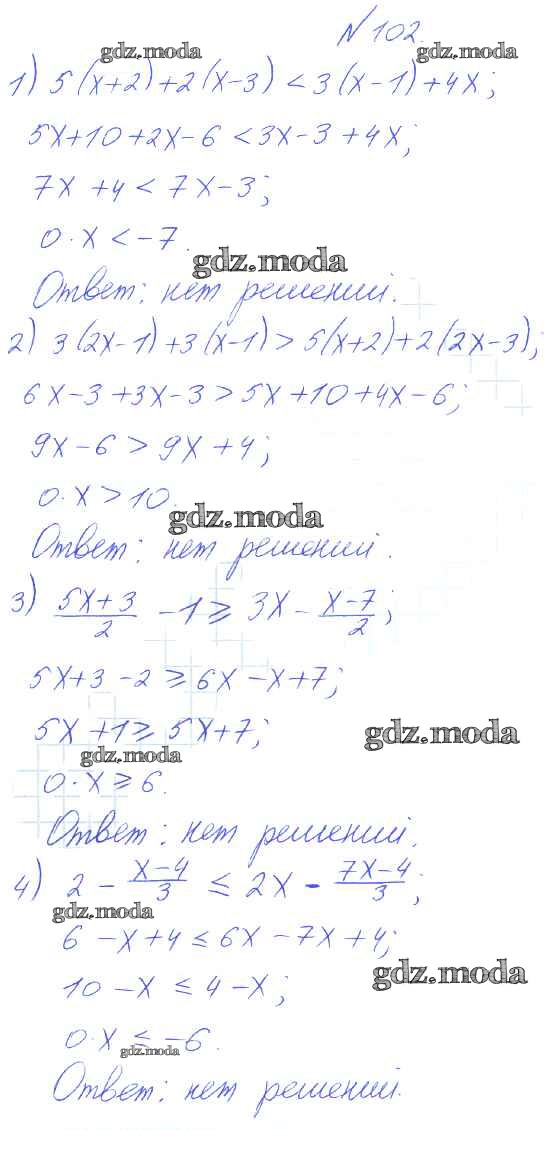 №102.
gdz.moda gdz.moda
1) 5(x+2)+2(x-3)<3(x-1)+4x;
5x+10+2x-6<3x-3+4x;
7x+4<7x-3;
0·x<-7.
gdz.moda
Ответ: нет решений.
2) 3(2x-1)+3(x-1)>5(x+2)+2(2x-3);
6x-3+3x-3>5x+10+4x-6;
9x-6>9x+4;
0·x>10.
gdz.moda
Ответ: нет решений.
3) (5x+3)/2 -1≥3x-(x-7)/2;
5x+3-2≥6x-x+7;
5x+1≥5x+7;
gdz.moda
gdz.moda
0·x≥6.
Ответ: нет решений.
4) 2-(x-4)/3≤2x-(7x-4)/3;
gdz.moda
6-x+4≤6x-7x+4;
gdz.moda
10-x≤4-x;
0·x≤-6.
gdz.moda
Ответ: нет решений.